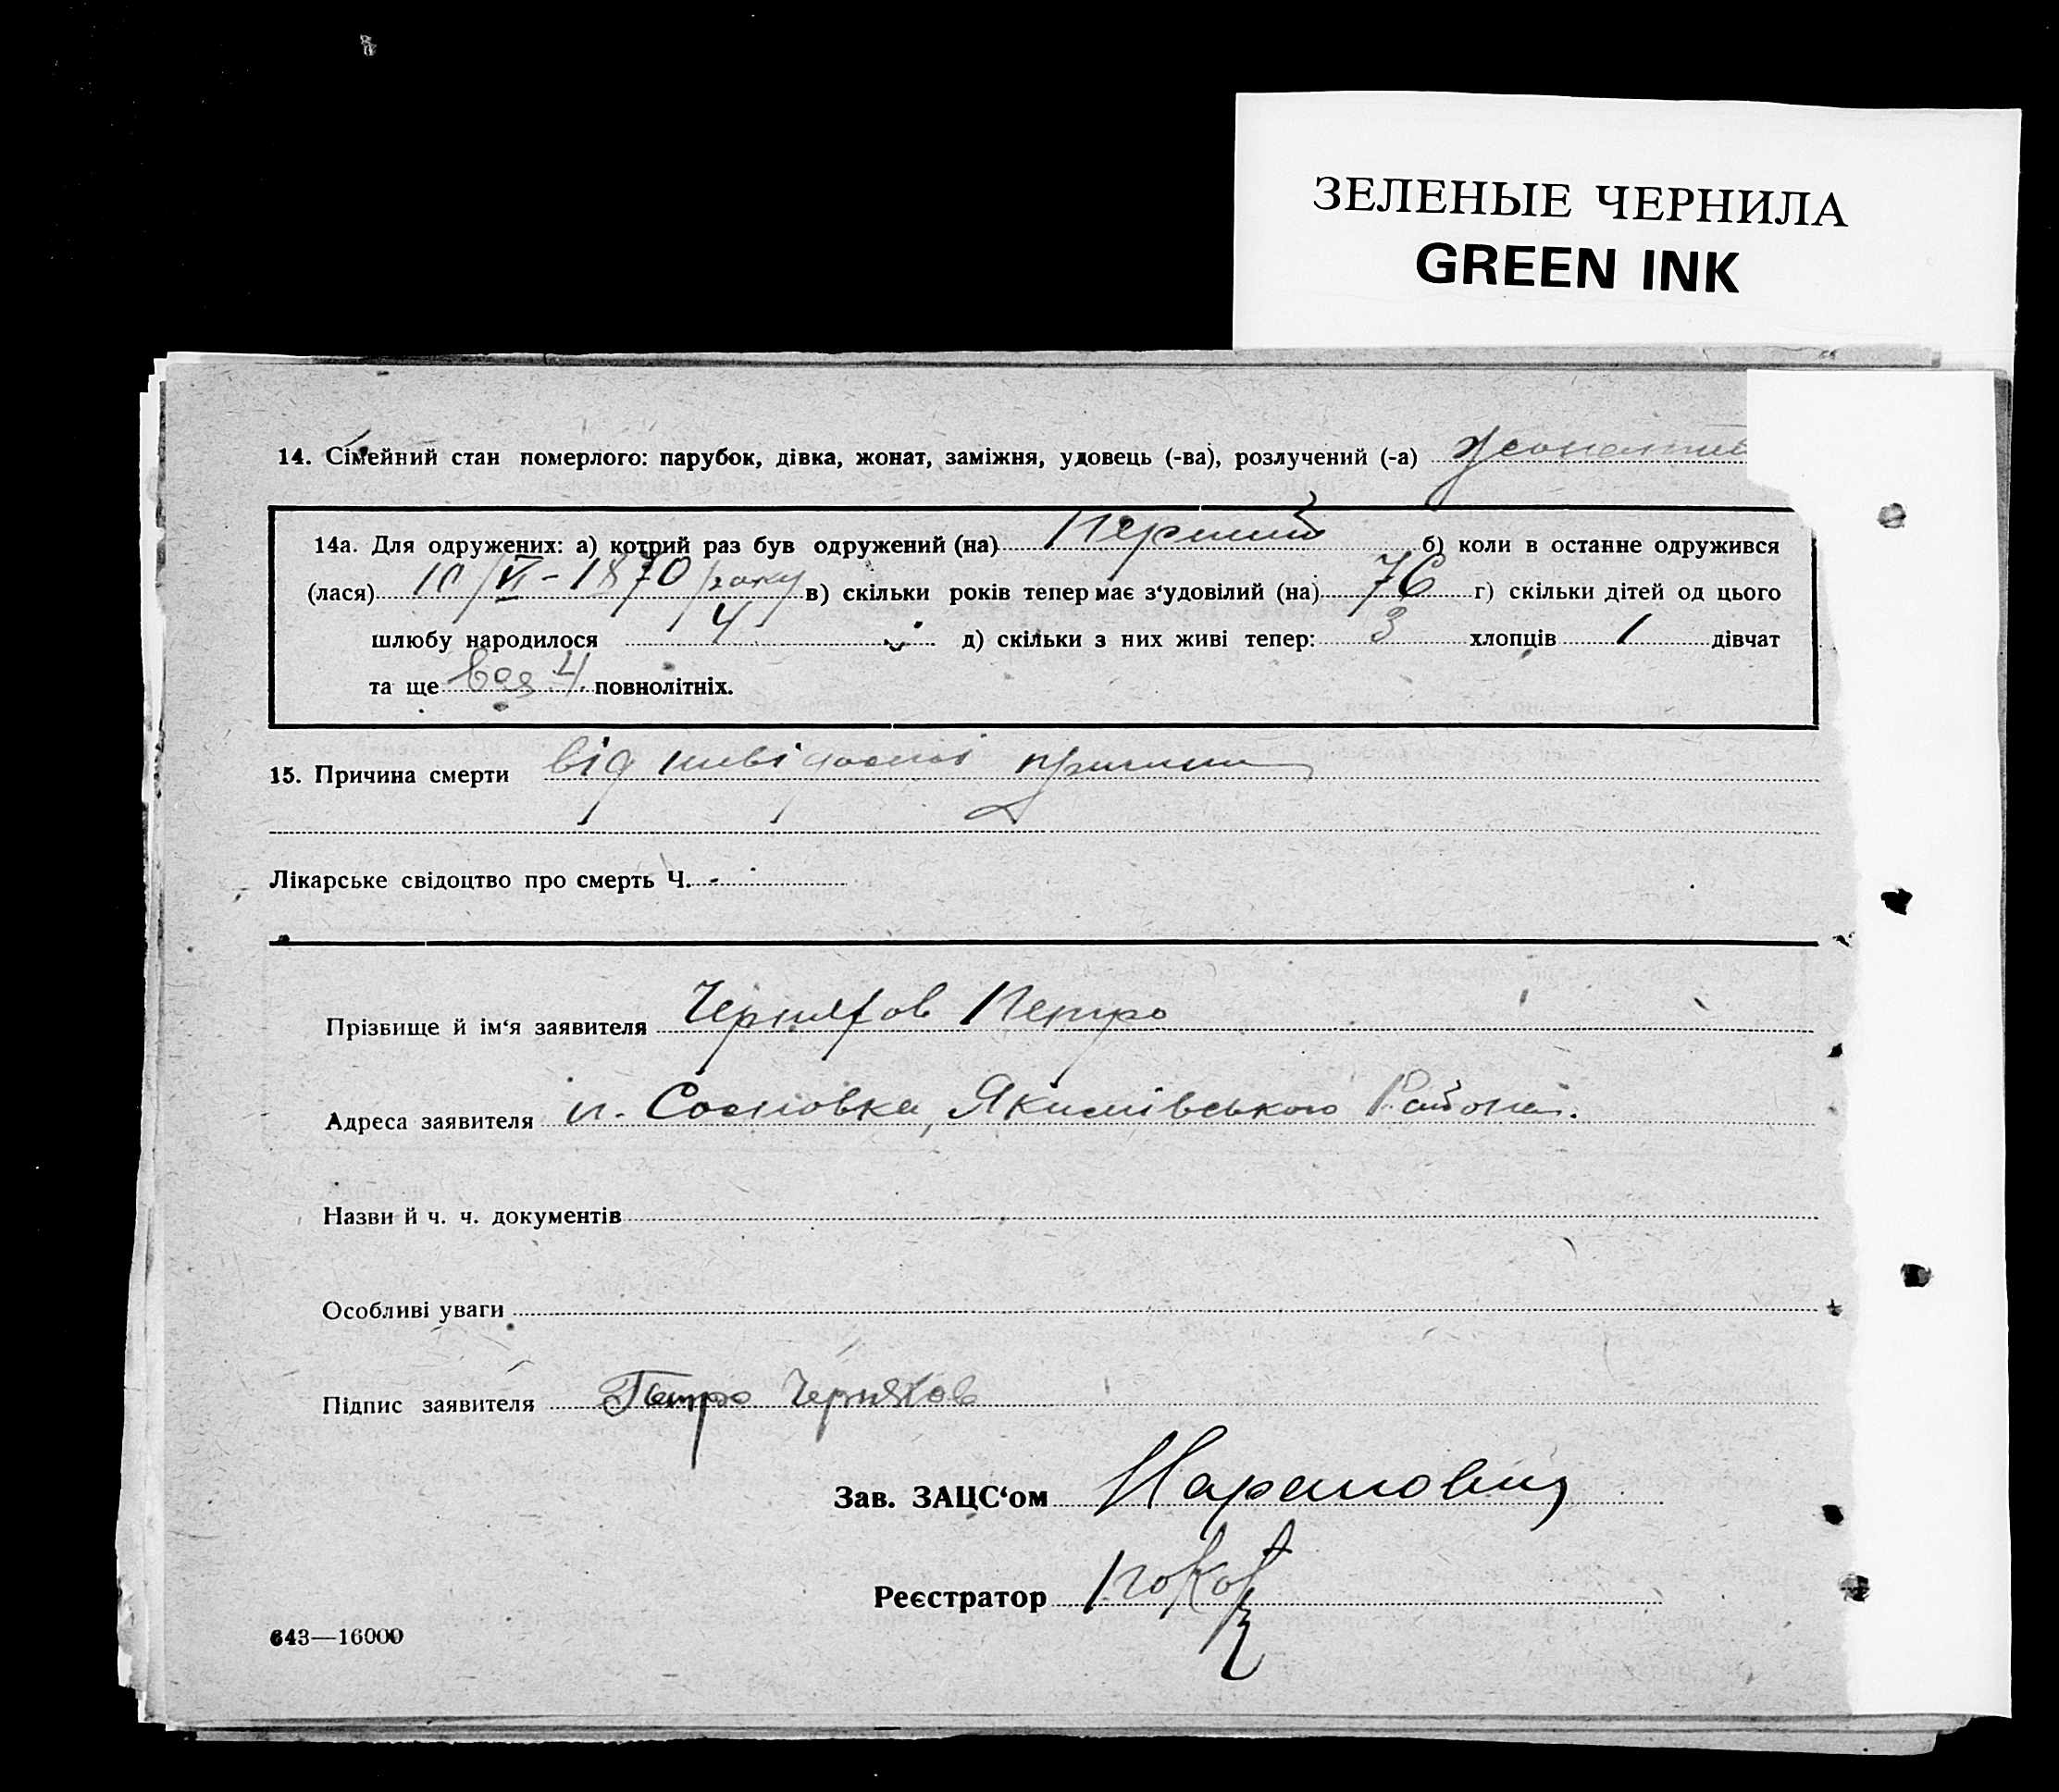 ЗЕЛЕНЫЕ ЧЕРНИЛА
GREEN INK
14. Сімейний стан померлого: парубок, дівка, жонат, заміжня, удовець (-ва), розлучений (-а)
14а. Для одружених: а) котрий раз був одружений (на) Перший б) коли в останне одружився
(лася) 10/VI - 1870 року в) скільки років тепер має з‘удовілий (на) 76 г) скільки дітей од цього
шлюбу народилося 4 д) скільки з них живі тепер: 3 хлопців 1 дівчат
та ще 4 повнолітніх.
15. Причина смерти від невідомої причини
Лікарське свідоцтво про смерть Ч. -
Прізвище й ім‘я заявителя Черняков Петро
Адреса заявителя Сосновка, Якимівського Району.
Назви й ч. ч. документів
Особливі уваги
Підпис заявителя Петро Черняков
Зав. ЗАЦС‘ом
Реєстратор
643—16000